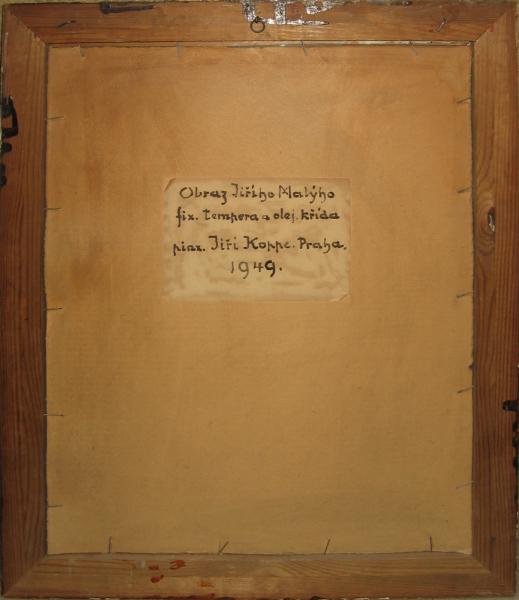 Obraz Jiřího Malýho
fix. tempera a olej. křída
pinx. Jiří Koppe. Praha.
1949.